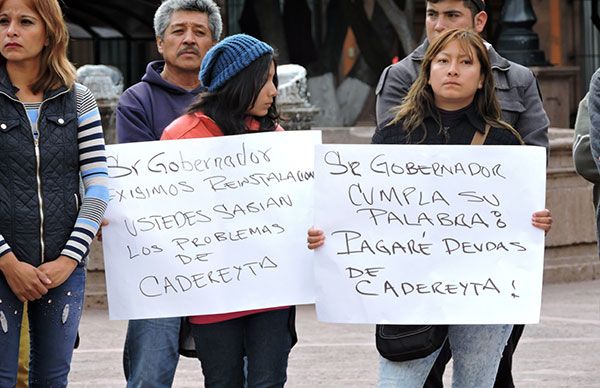 Sr Gobernador
EXIGIMOS REINSTALACION
USTEDES SABIAN
LOS PROBLEMAS
DE
CADEREYTA
SR GOBERNADOR
CUMPLA SU
PALABRA:
PAGARÉ DEUDAS
DE CADEREYTA!